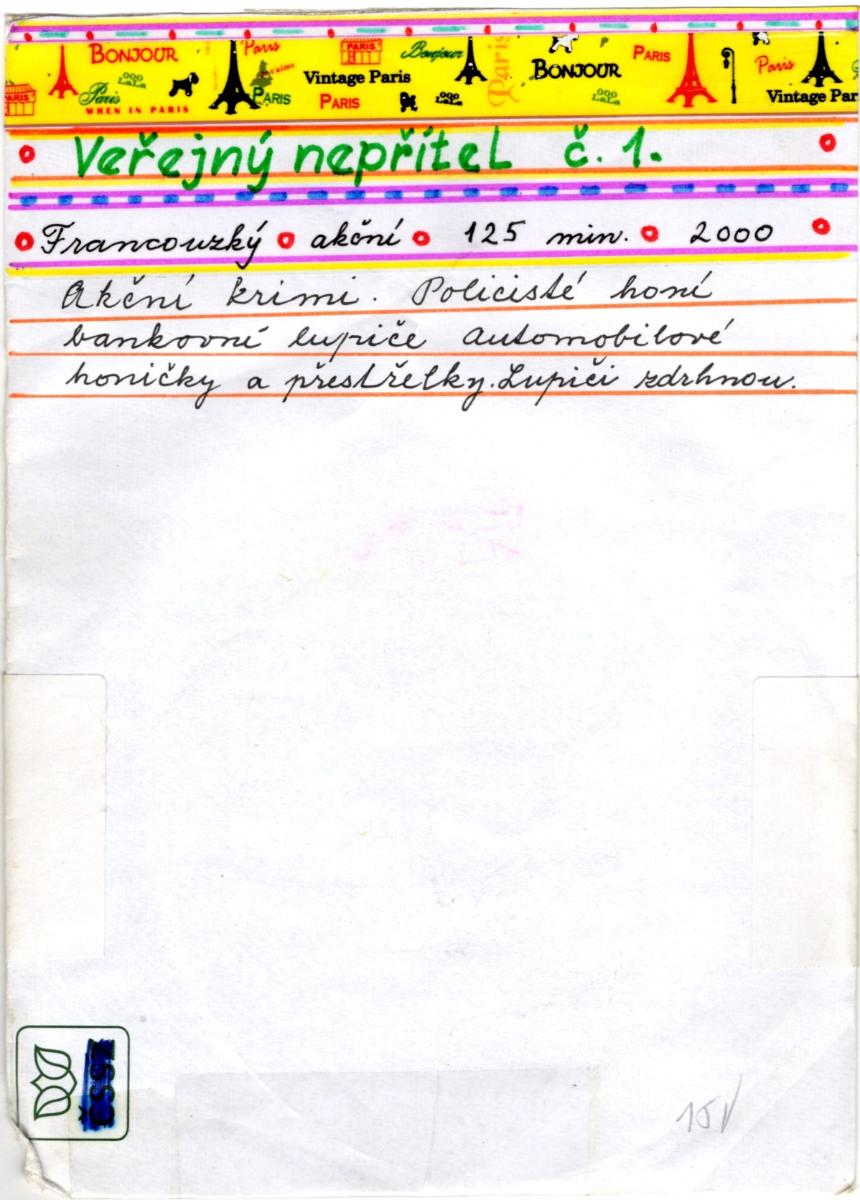 BONJOUR Paris PARIS Bonjour Paris BONJOUR PARIS Paris
PARIS Paris OOO LALA PARIS Vintage Paris OOO LALA Vintage Par
WHEN IN PARIS PARIS
Veřejný nepřítel č. 1.
Francouzký akční 125 min. 2000
Akční krimi. Policisté honí
bankovní lupiče automobilové
honičky a přestřelky. Lupiči zdrhnou.
ČSSZ